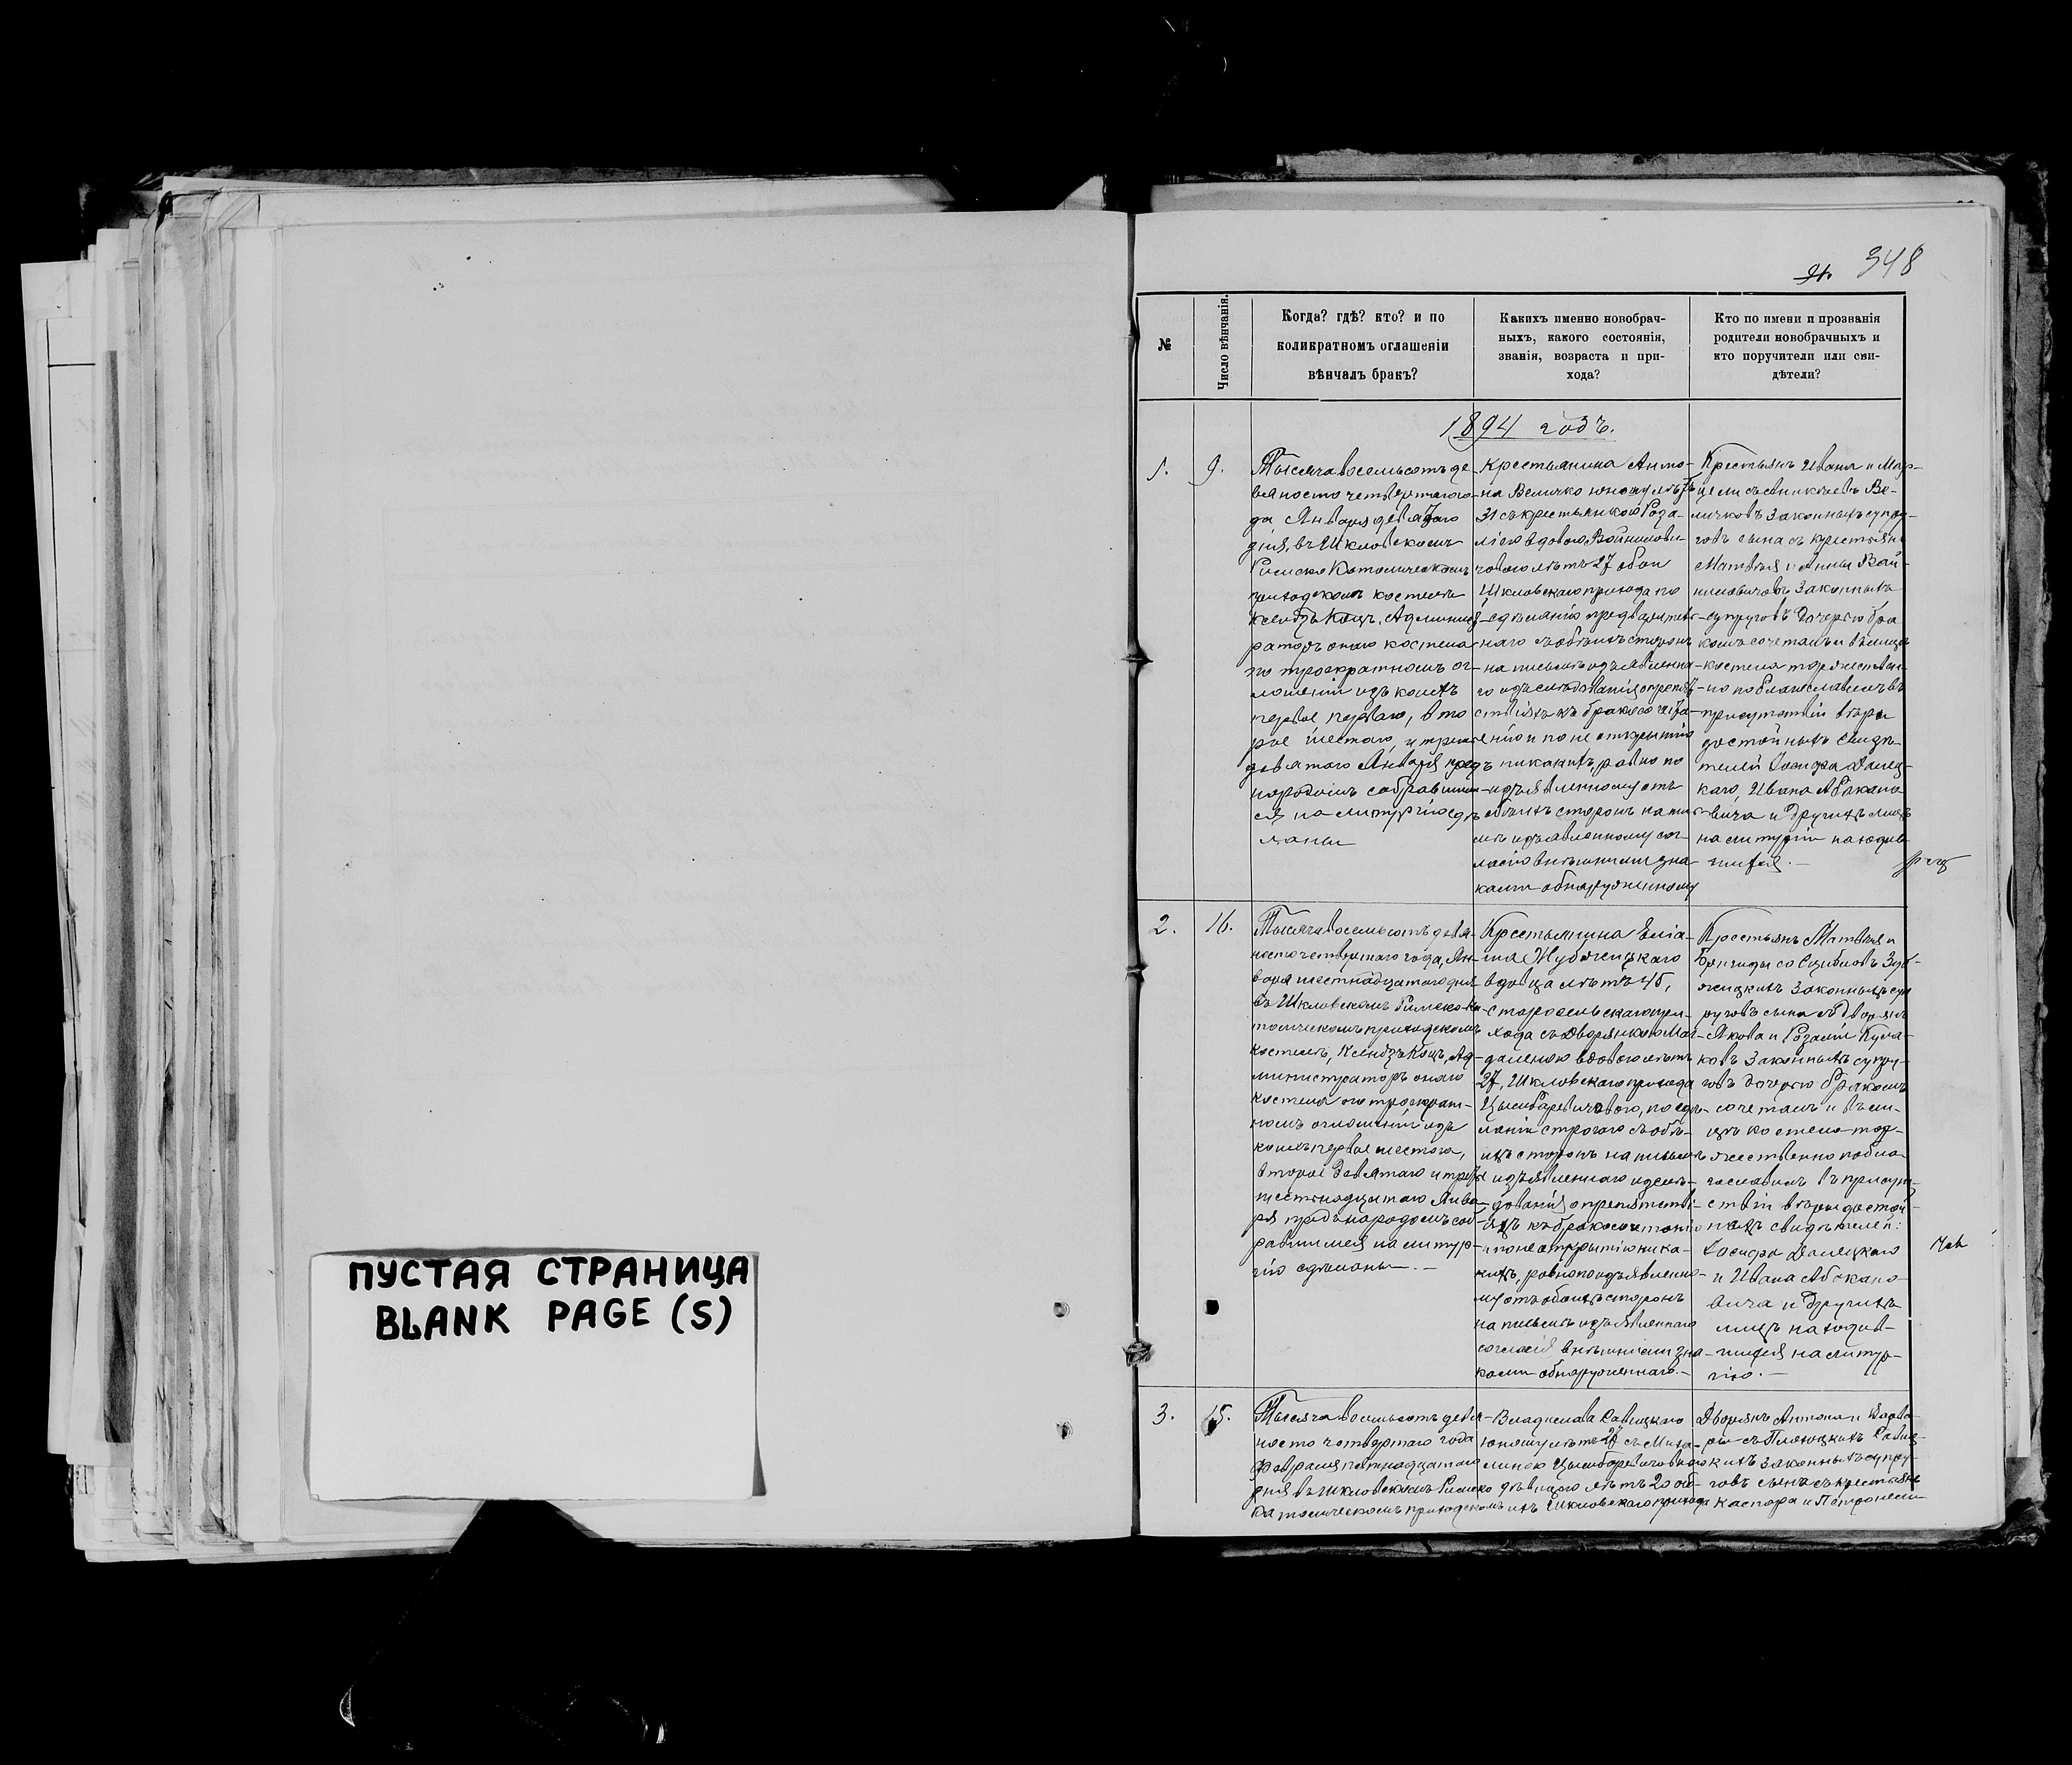 ПУСТАЯ СТРАНИЦА
BLANK PAGE (S)
348
№
Число вѣнчанія.
Когда? гдѣ? кто? и по
коликратномъ оглашеніи
вѣнчалъ бракъ?
Какихъ именно новобрач-
ныхъ, какого состоянія,
званія, возраста и при-
хода?
Кто по имени и прозванія
родители новобрачныхъ и
кто поручители или сви-
дѣтели?
1894 годъ.
1.
9.
Тысяча восемьсотъ де-
вяносто четвертаго го-
да, Января девятаго
дня, въ Шкловскомъ
Римско Католическомъ
приходскомъ костелѣ
Ксендзъ Коцъ, Админист
раторъ онаго костела
по троекратномъ ог-
лашеніи изъ коихъ
первое перваго, вто
рое шестаго, и третіе
девятаго Января предъ
народомъ собравшим
ся на литургію сдѣ
ланы
Крестьянина Анто-
на Величко юношу лѣтъ
31 съ крестьянкою Роза-
ліею вдовою Войнилови-
човою лѣтъ 27 обои
Шкловскаго прихода по
сдѣланіи предваритель
наго съ обѣихъ сторонъ
на письмѣ изъявленна
го изслѣдованія о препят
ствіяхъ къ бракосочета
нію и по не открытію
никакихъ, равно по
изъявленному отъ
обѣихъ сторонъ на пис
мѣ изъявленному сог-
ласію внѣшними зна-
ками обнаруженному
Крестьянъ Ивана и Мар-
цели съ Аникѣевъ Ве-
личковъ законныхъ супру-
говъ сына съ крестьянъ
Матвѣя и Анны Вой-
ниловичовъ законныхъ
супруговъ дочерью бра
комъ сочеталъ и въ лицѣ
костела торжествен-
но поблагословилъ въ
присутствіи вѣры
достойныхъ свидѣ-
телей Іосифа Далец-
каго, Ивана Абакано-
вича и другихъ лицъ
на литургіи находив-
шихся.
2.
16.
Тысяча восемьсотъ девя-
носто четвертаго года, Ян-
варя шестнадцатаго дня
въ Шкловскомъ Римско Ка-
толическомъ приходскомъ
костелѣ, Ксендзъ Коцъ, Ад-
министраторъ онаго
костела по троекрат-
номъ оглашеніи изъ
коихъ первое шестого,
второе девятаго и третье
шестнадцатаго Янва-
ря предъ народомъ соб-
равшимся на литур-
гію сдѣланы.
Крестьянина Еліа-
ша Жубжицкаго
вдовца лѣтъ 45,
Старосельскаго при-
хода съ Дворянкою Маг-
даленою вдовою лѣтъ
27, Шкловскаго прихода
Цымбаревичовою, по сдѣ-
ланіи строгаго съ обѣ-
ихъ сторонъ на письмѣ
изъявленнаго изслѣ-
дованія о препятстві-
яхъ къ бракосочетанію
и по не открытію ника-
кихъ, равно по изъявленно-
му отъ обоихъ сторонъ
на письмѣ изъявленнаго
согласія внѣшними зна-
ками обнаруженнаго.
Крестьянъ Матвѣя и
законныхъ суп
руговъ сына съ Дворянъ
Якова и Розаліи Кула-
ковъ законныхъ супру-
говъ дочерью бракомъ
сочеталъ и въ ли-
цѣ костела тор-
жественно побла-
гословилъ въ присут-
ствіи вѣры достой-
ныхъ свидѣтелей:
Іосифа Далецкаго
и Ивана Абакано-
вича и другихъ
лицъ находив-
шихся на литур-
гію.
3.
15.
Тысяча восемьсотъ девя-
носто четвертаго года
Февраля пятнадцатаго
дня въ Шкловскомъ Римско
Католическомъ приходскомъ
Владислава Савицкаго
юношу лѣтъ 27 съ Миха-
линою Цымбаревичовною
дѣвицею лѣтъ 20 обо-
ихъ Шкловскаго прихода
Дворянъ Антона и Варва-
ры съ Савиц-
кихъ законныхъ супру-
говъ сына съ крестьянъ
Каспара и Петронели